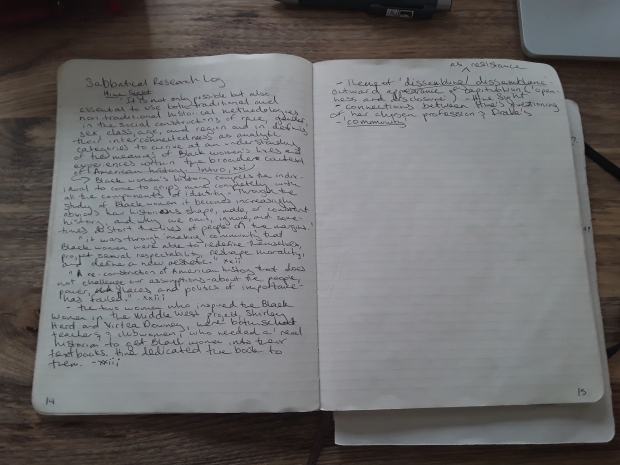 Sabbatical Research Log
Hine Sight
"It is not only possible but also
essential to use both traditional and
non-traditional historical methodologies
in the social constructions of race, gender,
sex, class, age, and region and in defining
their interconnectedness as analytic
categories to arrive at an understanding
of the meaning of Black women's lives and
experiences within the broader context
of American history. Intro, xxi
Black women's history compels the indiv-
idual to come to grips more completely with
all the components of identity. Through the
study of Black women it becomes increasingly
obvious how historians shape, make, or construct
history, and why we omit, ignore, and some-
times distort the lives of people on the margins."
"it was through 'making community' that
Black women were able to redefine themselves,
project sexual respectability, reshape morality,
and define a new aesthetic." xxii
"A re-construction of American history that does
not challenge our assumptions about the people,
power, places and politics of importance
has failed." xxiii
- the two women who inspired the Black
Women in the Middle West project, Shirley
Herd and Virtea Downey, were both school
teachers & clubwomen, who needed a 'real'
historian to get Black women into their
textbooks. Hine dedicated the book to
them. - xxiii
14
as resistance
- theme of 'dissemblance'
outward appearance of capitulation ("open-
ness and disclosure") - Hine Sight
- connections between Hine's questioning
of her chosen profession &
- community
15